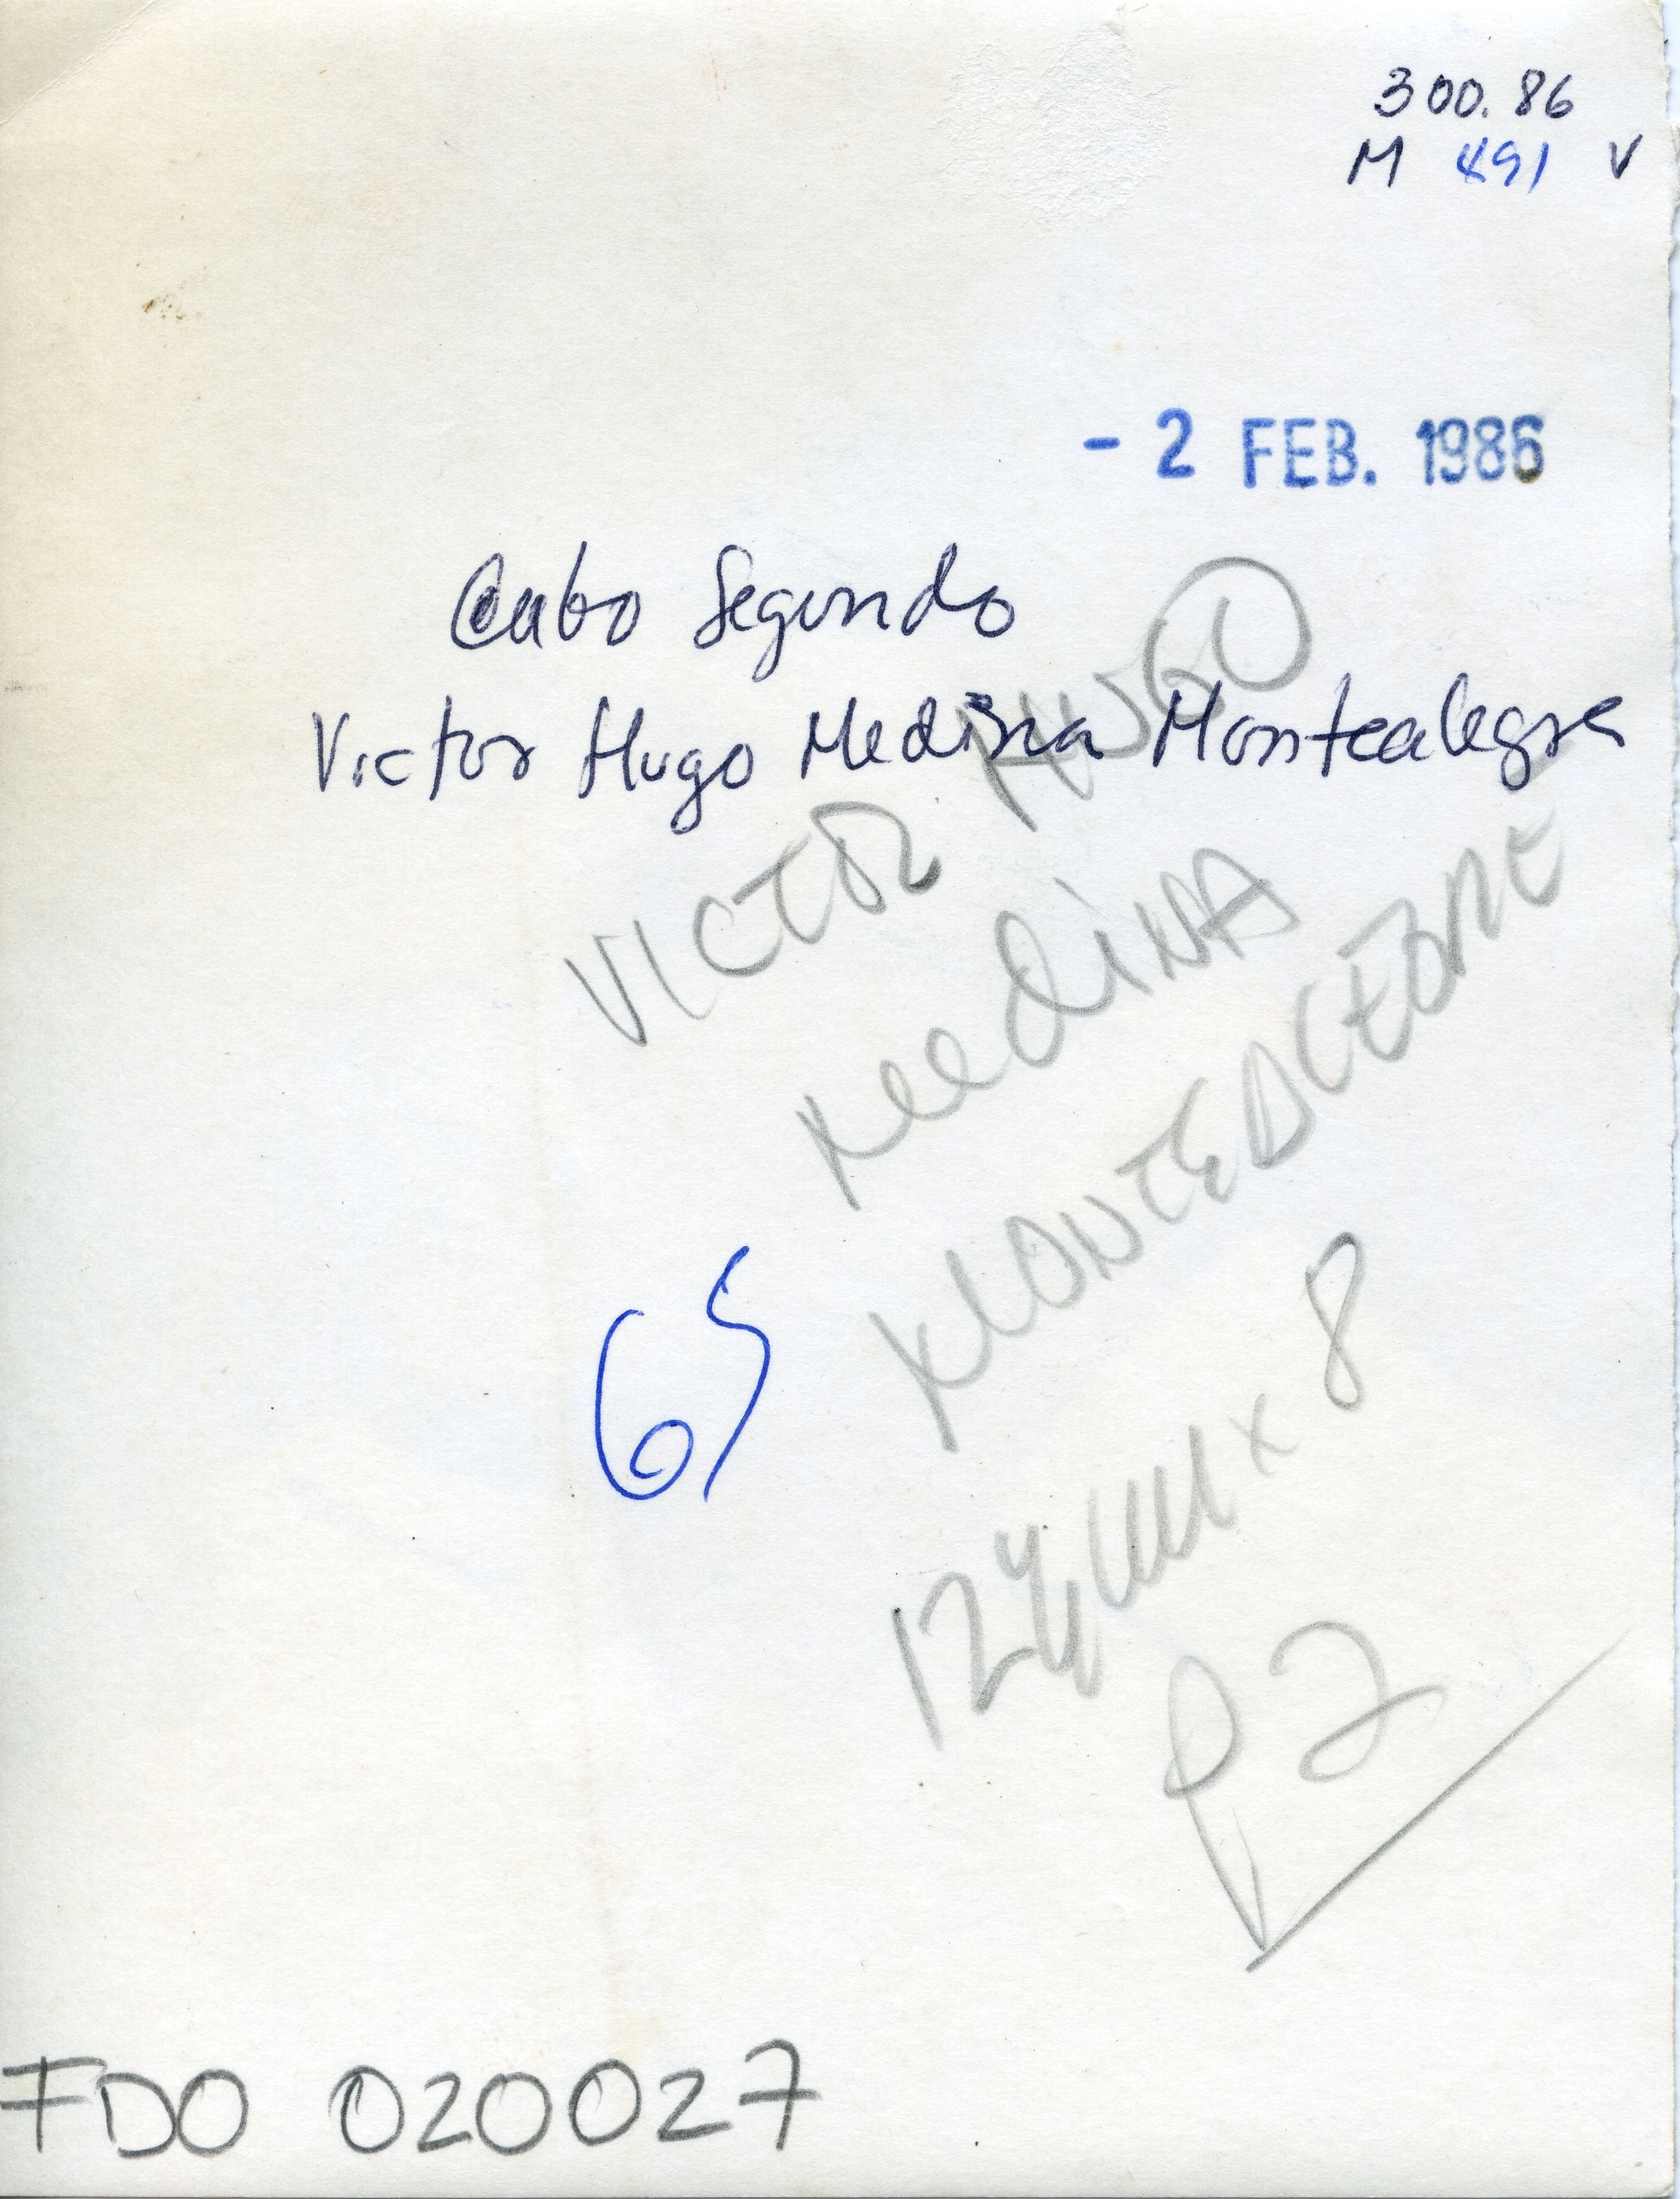 300.86
M 491 V
- 2 FEB. 1986
Cabo Segundo
Victor Hugo Medina Montealegre
VICTOR HUGO
MEdiNA
MONTEALEGRE
65
x 8
P2
FDO 020027